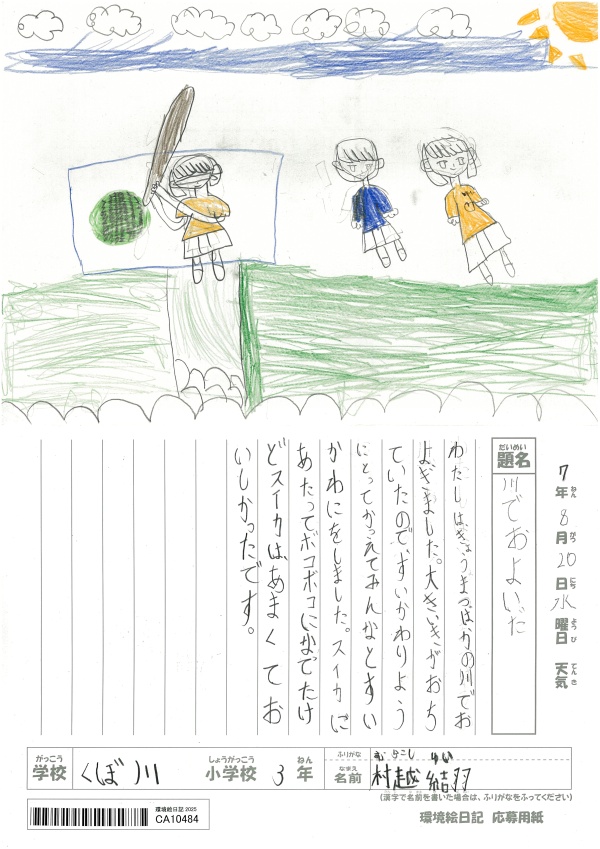 7年8月20日水曜日 天気
ねん がつ にち ようび てんき
だいめい
題名
川でおよいだ
わたしは、きょうまつばかの川でお
よぎました。大きいきがおち
ていたので、すいかわりよう
にとってかえてみんなとすい
かわにをしました。スイカに
あたってボコボコになったけ
どスイカは、あまくてお
いしかったです。
がっこう しょうがっこう ねん
学校 くぼ川 小学校 3年
ふりがな むらこし ゆい
なまえ
名前 村越 結羽
(漢字で名前を書いた場合は、ふりがなをふってください)
環境絵日記 2025
CA10484
環境絵日記 応募用紙